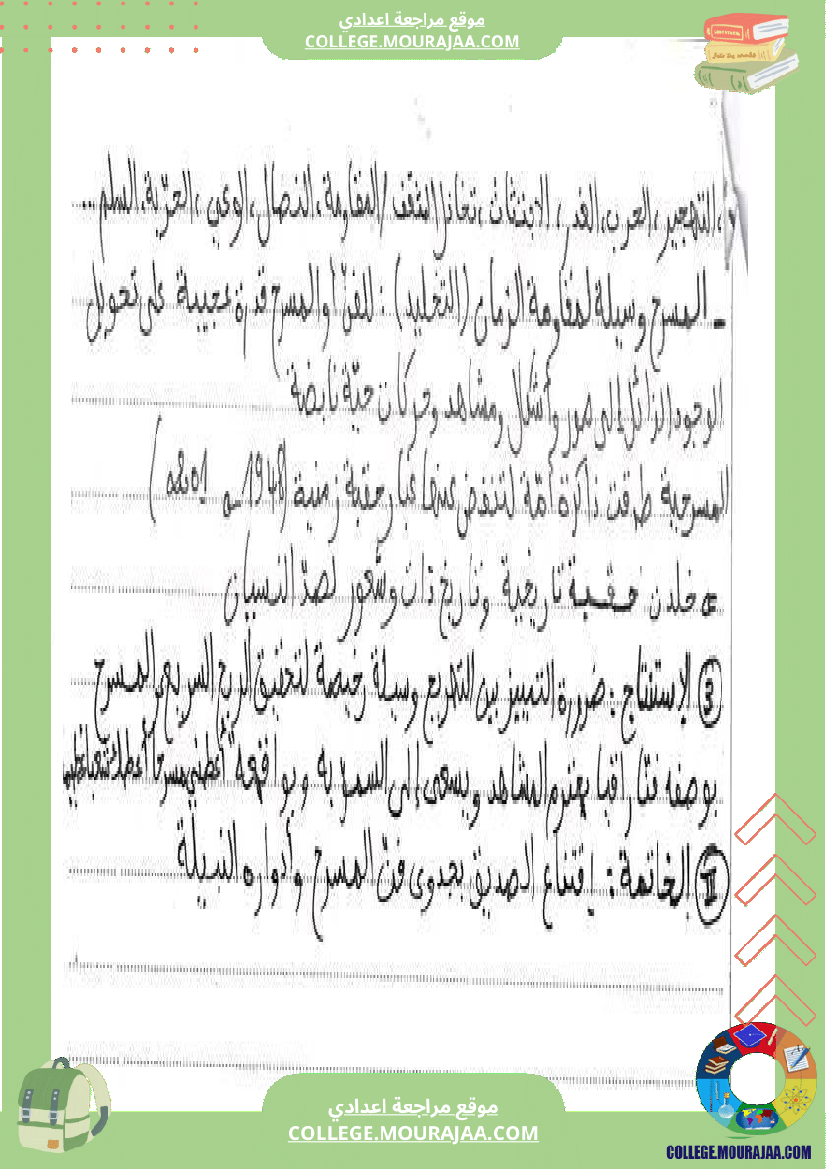 موقع مراجعة اعدادي
COLLEGE.MOURAJAA.COM
، التهجير، الحرب، الغدر، الانبتات، تخاذل المثقف / المقاومة، النضال، الوعي، الحرّية، السلم ..
ـ المسرح وسيلة لمقاومة الزمان (التخليد) : للفنّ أو المسرح قدرة عجيبة على تحويل
الوجود الزائل إلى صور وأشكال ومشاهد وحركات حيّة نابضة
المسرحية طرقت ذاكرة أمّة لتنفض عنها غبار حقبة زمنية (1948
خلدت حقبة تاريخية وتاريخ ذات وشعور لصدّ النسيان
③ الاستنتاج : ضرورة التمييز بين التهريج وسيلة رخيصة لتحقيق الربح السريع والمسرح
بوصفه فنّا راقيا يحترم المشاهد ويسعى إلى السموّ به وبواقعه "أعطني مسرحا أعطك شعبا عظيما
Ⅲ الخاتمة : اقتناع الصديق بجدوى فنّ المسرح وأدواره النبيلة
موقع مراجعة اعدادي
COLLEGE.MOURAJAA.COM
COLLEGE.MOURAJAA.COM